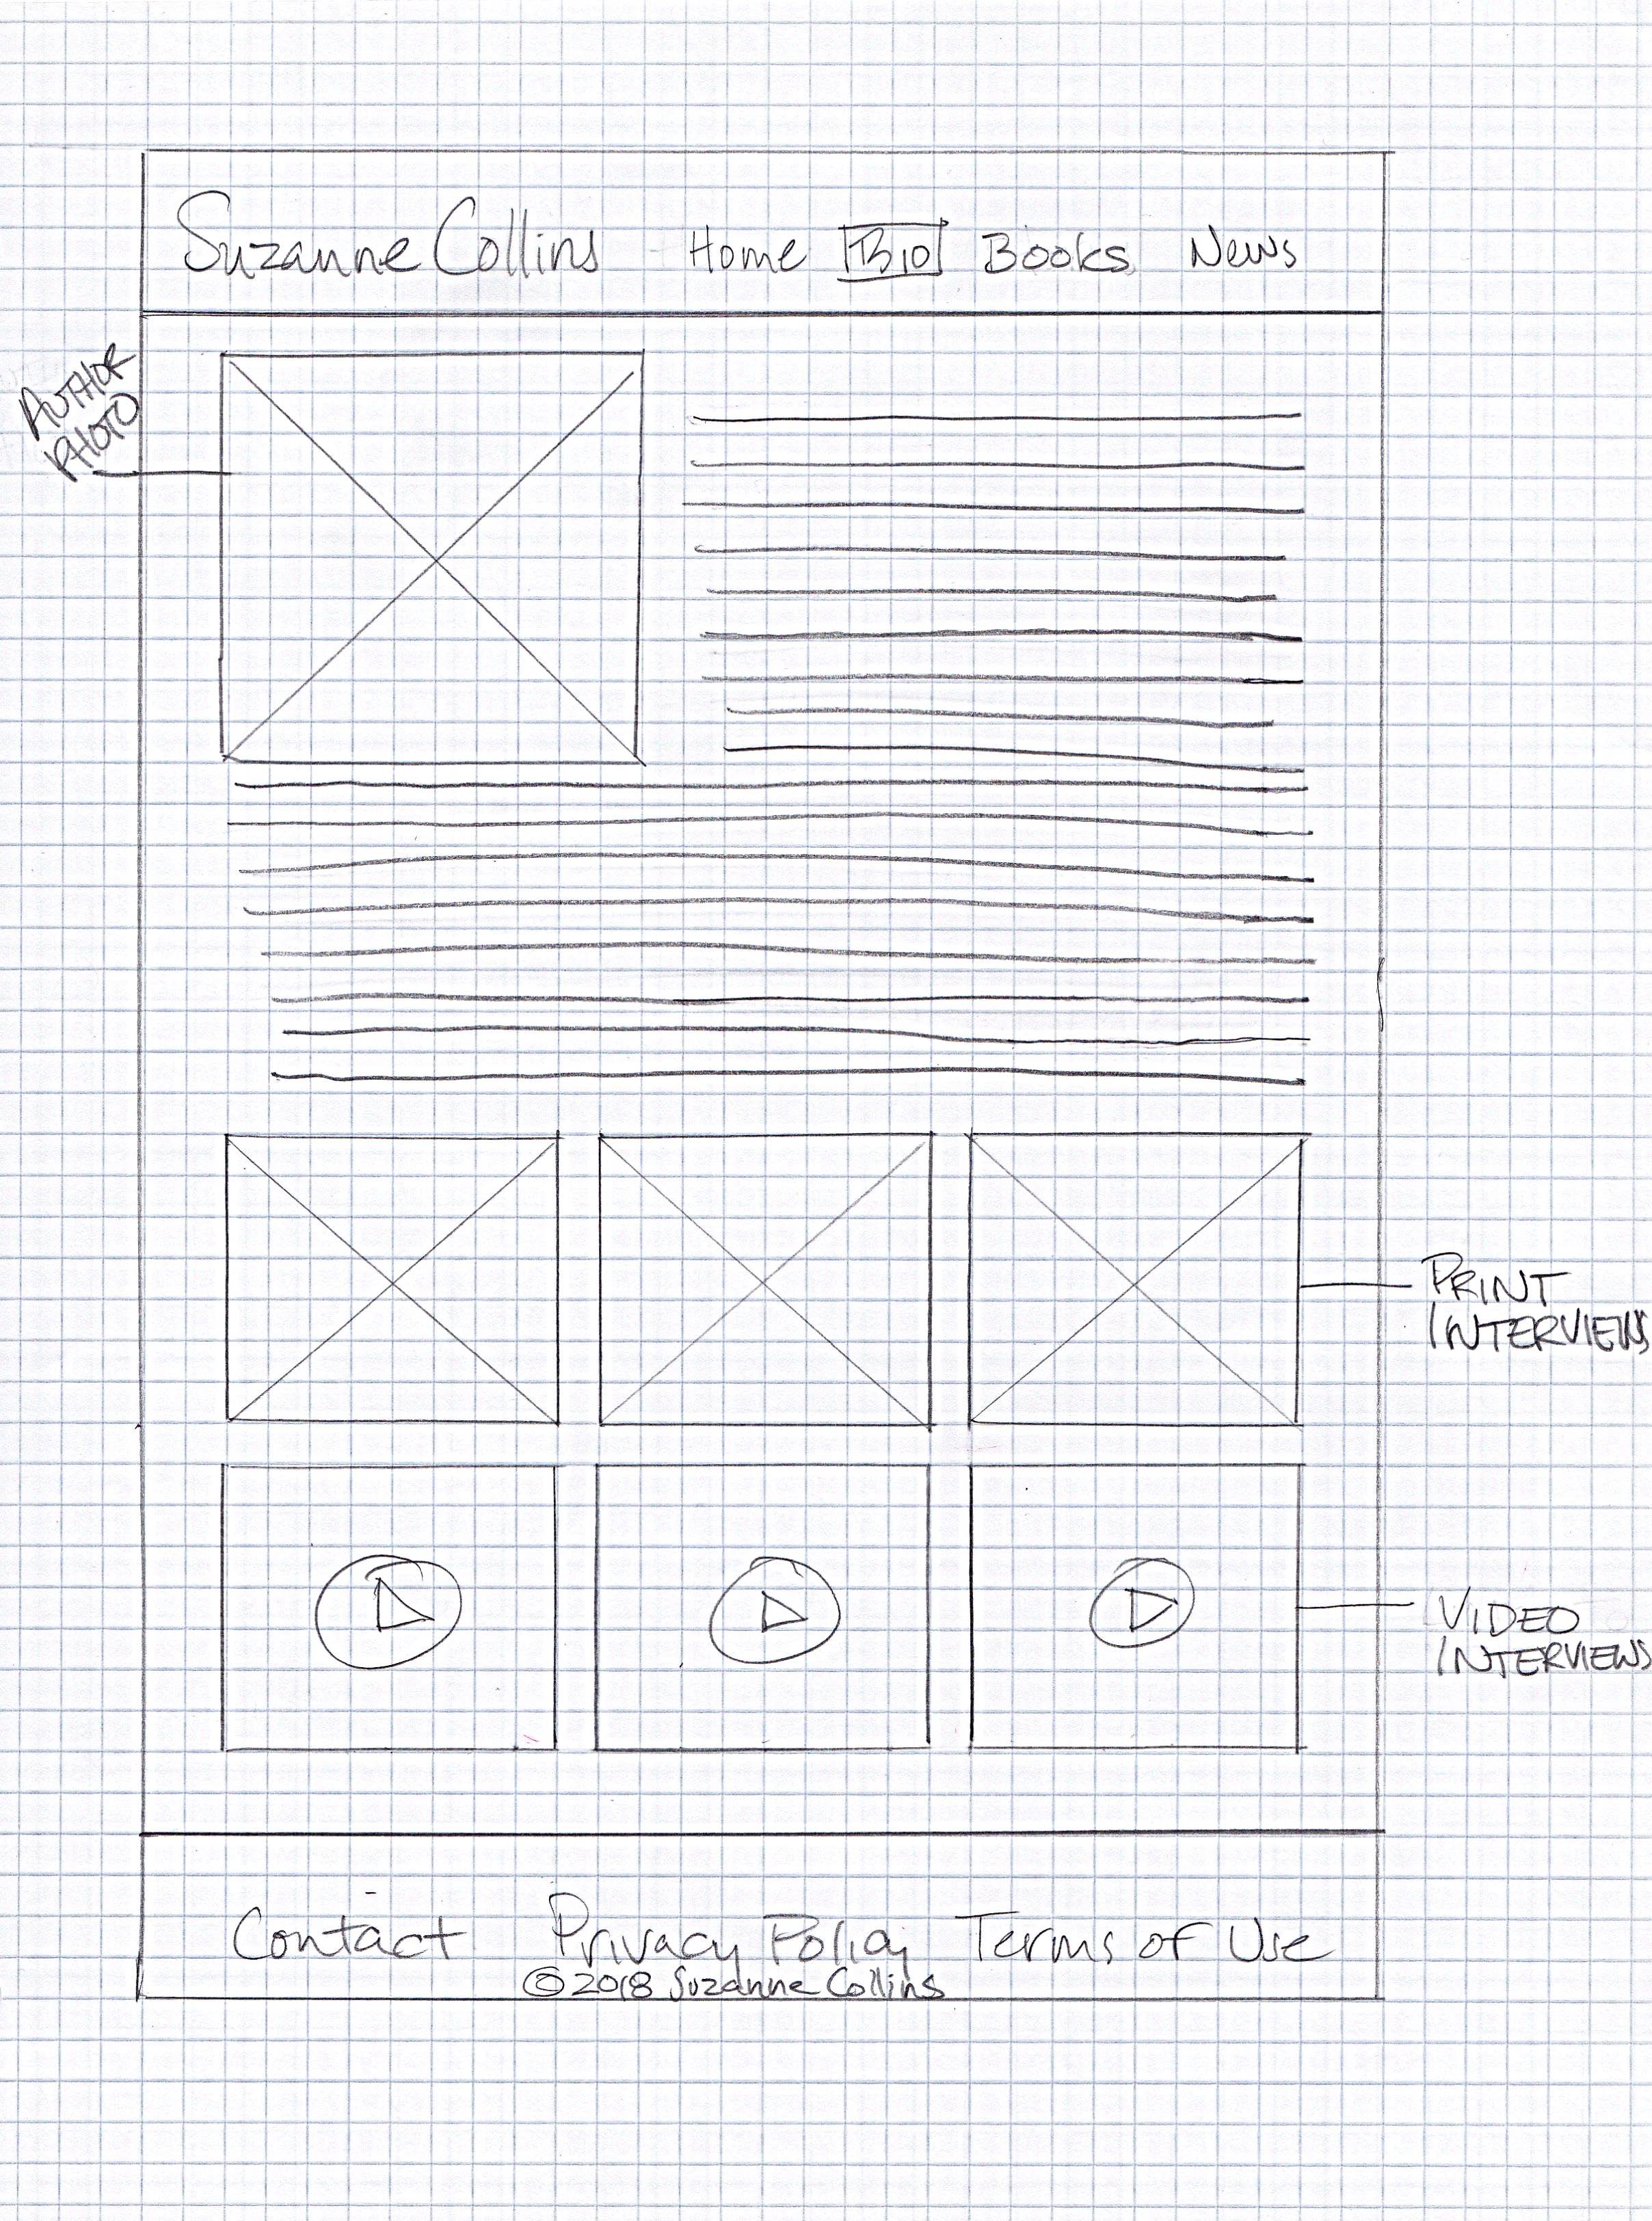 Suzanne Collins Home Bio Books News
AUTHOR
PHOTO
PRINT
INTERVIEWS
VIDEO
INTERVIEWS
Contact Privacy Policy Terms of Use
©2018 Suzanne Collins